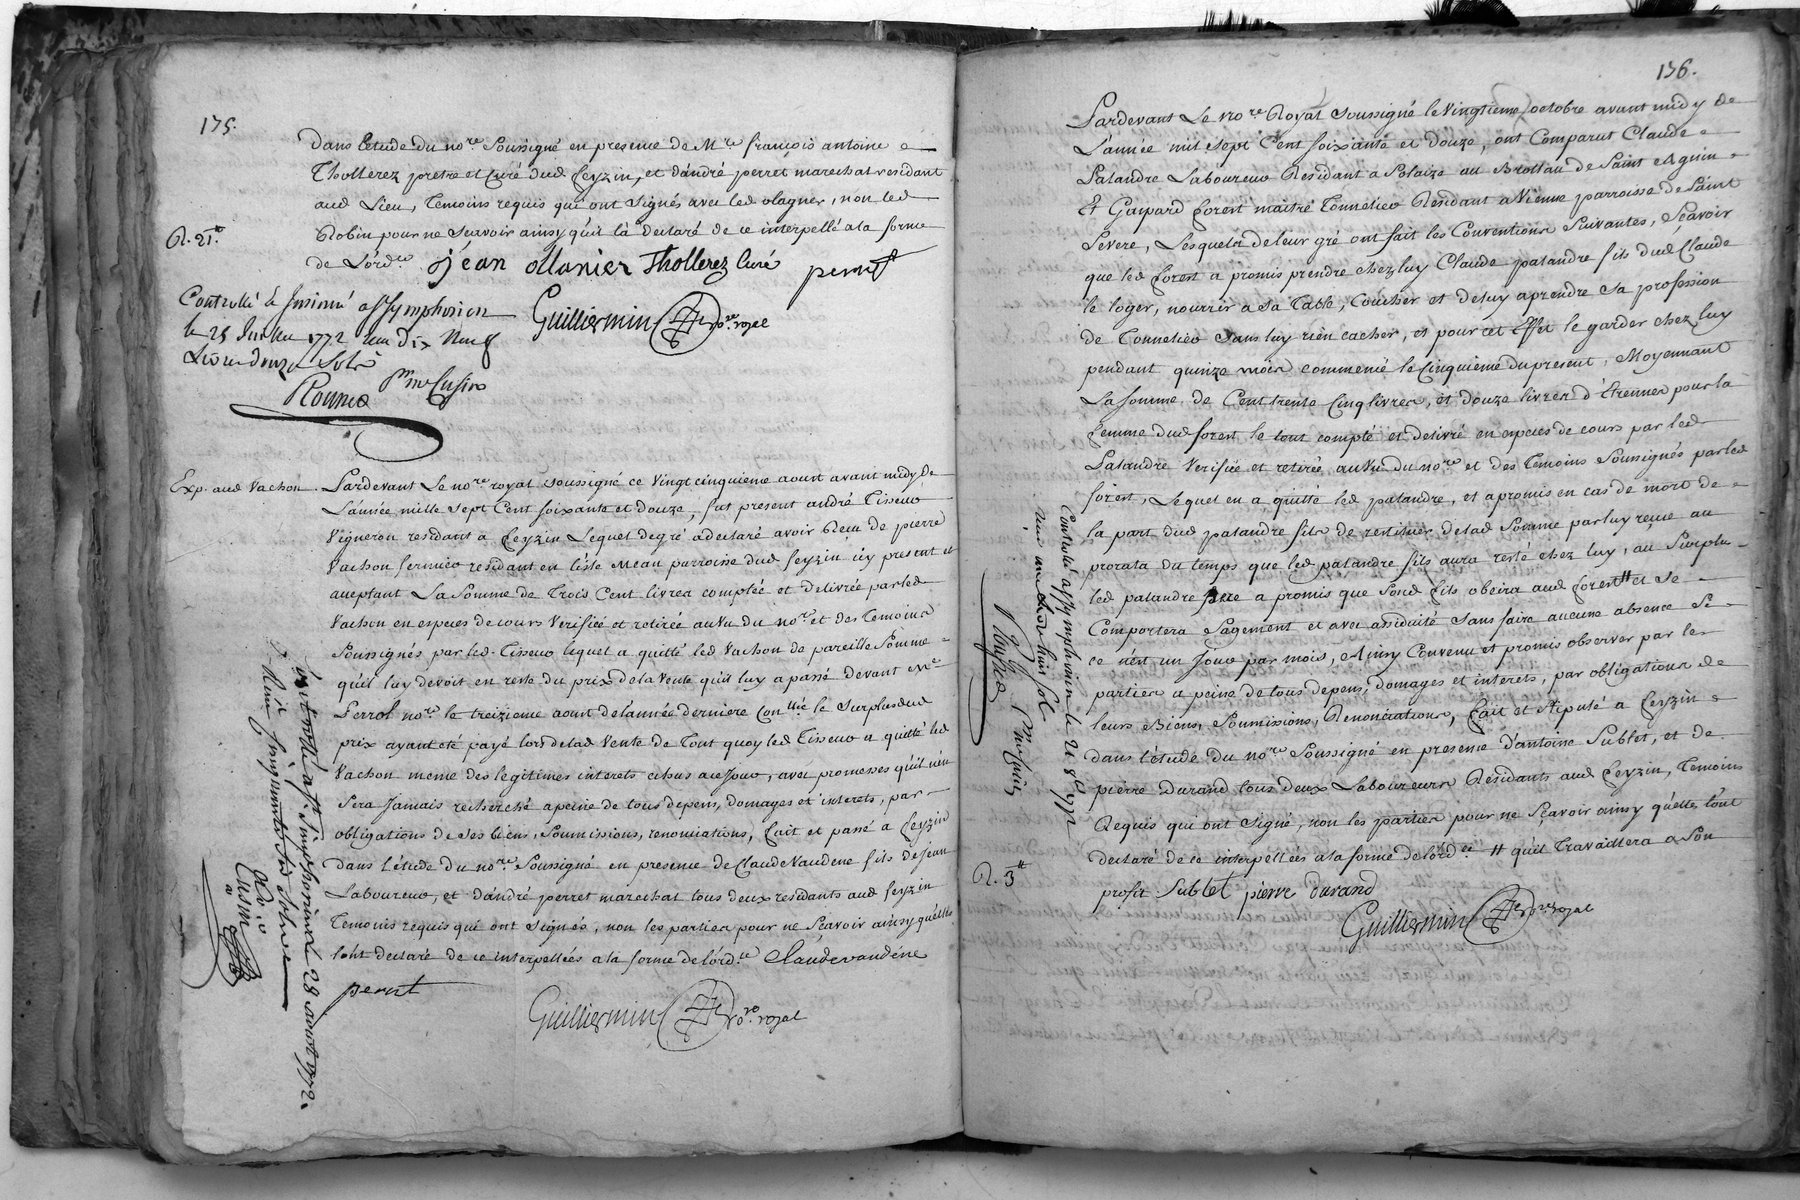 175.
dans letude du no.re soussigné en presence de M.re françois antoine
Thollerez pretre et Curé dud feyzin, et dandré perret marechat residant
aud Lieu, Temoins requis qui ont signés avec led olagner, non led
Robin pour ne scavoir ainsy quil là declaré de ce interpellé ala forme
de Lord.ce jéan ollanier Thollerez Curé perret
R. 21.#
Controllé & Insinué a st symphorien
le 25 Juillet 1772 Reçu dix neuf
Livres douze sols
Guilliermin no.re royal
Exp. aud Vachon
Pardevant Le no.re royal soussigné ce Vingt cinquieme aoust avant midy de
Lannée mille sept Cent soixante et douze, fut present andré Tisseur
Vigneron residant a feyzin Lequel de gré a declaré avoir Reçu de pierre
Vachon fermier residant en lisle Mean parroisse dud feyzin icy present et
aceptant La somme de Trois Cent livres comptée et delivrée par led
Vachon en especes de cours Verifiée et retirée au Vu du no.re et des Temoins
soussignés par led. Tisseur lequel a quitté led Vachon de pareille somme
quil luy devoit en reste du prix de la Vente quil luy a passé devant M.e
Perrol no.re le treizieme aoust de lannée derniere Con.llé le surplus dud
prix ayant eté payé lors de lad Vente de Tout quoy led Tisseur a quitté led
Vachon meme des legitimes interets echus a ce Jour, avec promesses quil nen
sera Jamais recherché a peine de tous depens, domages et interets, par
obligations de ses biens, soumissions, renonciations, fait et passé a feyzin
dans létude du no.re soussigné en presence de Claude Vaudene fils de Jean
Laboureur, et dandré perret marechat tous deux residants aud feyzin
Temoins requis qui ont signés, non les parties pour ne scavoir ainsy quelles
lont declaré de ce interpellées a la forme de lord.ce Claudevandéne
perret
Guilliermin no.re royal
Controllé a st. simphorien le 28 aoust 1772.
136.
Pardevant Le no.re Royal soussigné le Vingtieme octobre avant midy de
Lannée mil sept Cent soixante et douze, ont Comparut Claude
Palandre Laboureur Residant a Solaize au Brottau de Saint Aguin
Et Gaspard forest maitre Tonnelier Residant a Vienne parroisse de Saint
Severe, Lesquels de leur gré ont fait les Conventions suivantes, sçavoir
que led forest a promis prendre chez luy Claude palandre fils dud Claude
le loger, nourrir a sa Table, Coucher et de luy aprendre sa profession
de Tonnelier sans luy rien cacher, et pour cet Effet le garder chez luy
pendant quinze mois commencé le Cinquieme du present, Moyennant
La somme de Cent trente Cinq livres, et douze livres d'Etrennes pour la
femme dud forest le tout compté et delivré en especes de cours par led
Palandre Verifiée et retirée au Vu du no.re et des Temoins soussignés par led
forest, Lequel en a quitté led palandre, et a promis en cas de mort de
la part dud palandre fils de restituer de lad somme par luy reçue au
prorata du temps que led palandre fils aura resté chez luy, au surplus
led palandre pere a promis que sond fils obeira aud forest # et se
Comportera sagement et avec assiduité sans faire aucune absence si
ce nest un Jour par mois, Ainsy Convenu et promis observer par les
parties a peine de tous depens, domages et interets, par obligations de
leurs Biens, soumissions, Renonciations, fait et stipulé a feyzin
dans létude du no.re soussigné en presence d'antoine Sublet, et de
pierre Durand tous deux Laboureurs Residants aud feyzin, Temoins
Requis qui ont signé, non les parties pour ne sçavoir ainsy quelles lont
declaré de ce interpellées a la forme de lord.ce # quil Travaillera a son
profit Sublet pierre durand
Guilliermin no.re royal
R. 3#
Controlé a st symphorien le 21 8bre 1772